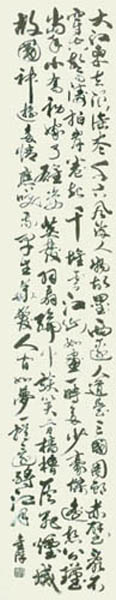 大江東去浪淘盡千古風流人物故壘西邊人道是三國周郎赤壁亂石
穿空驚濤拍岸卷起千堆雪江山如畫一時多少豪傑遙想公瑾
當年小喬初嫁了雄姿英發羽扇綸巾談笑間檣櫓灰飛煙滅
故國神遊多情應笑我早生華髮人間如夢一樽還酹江月